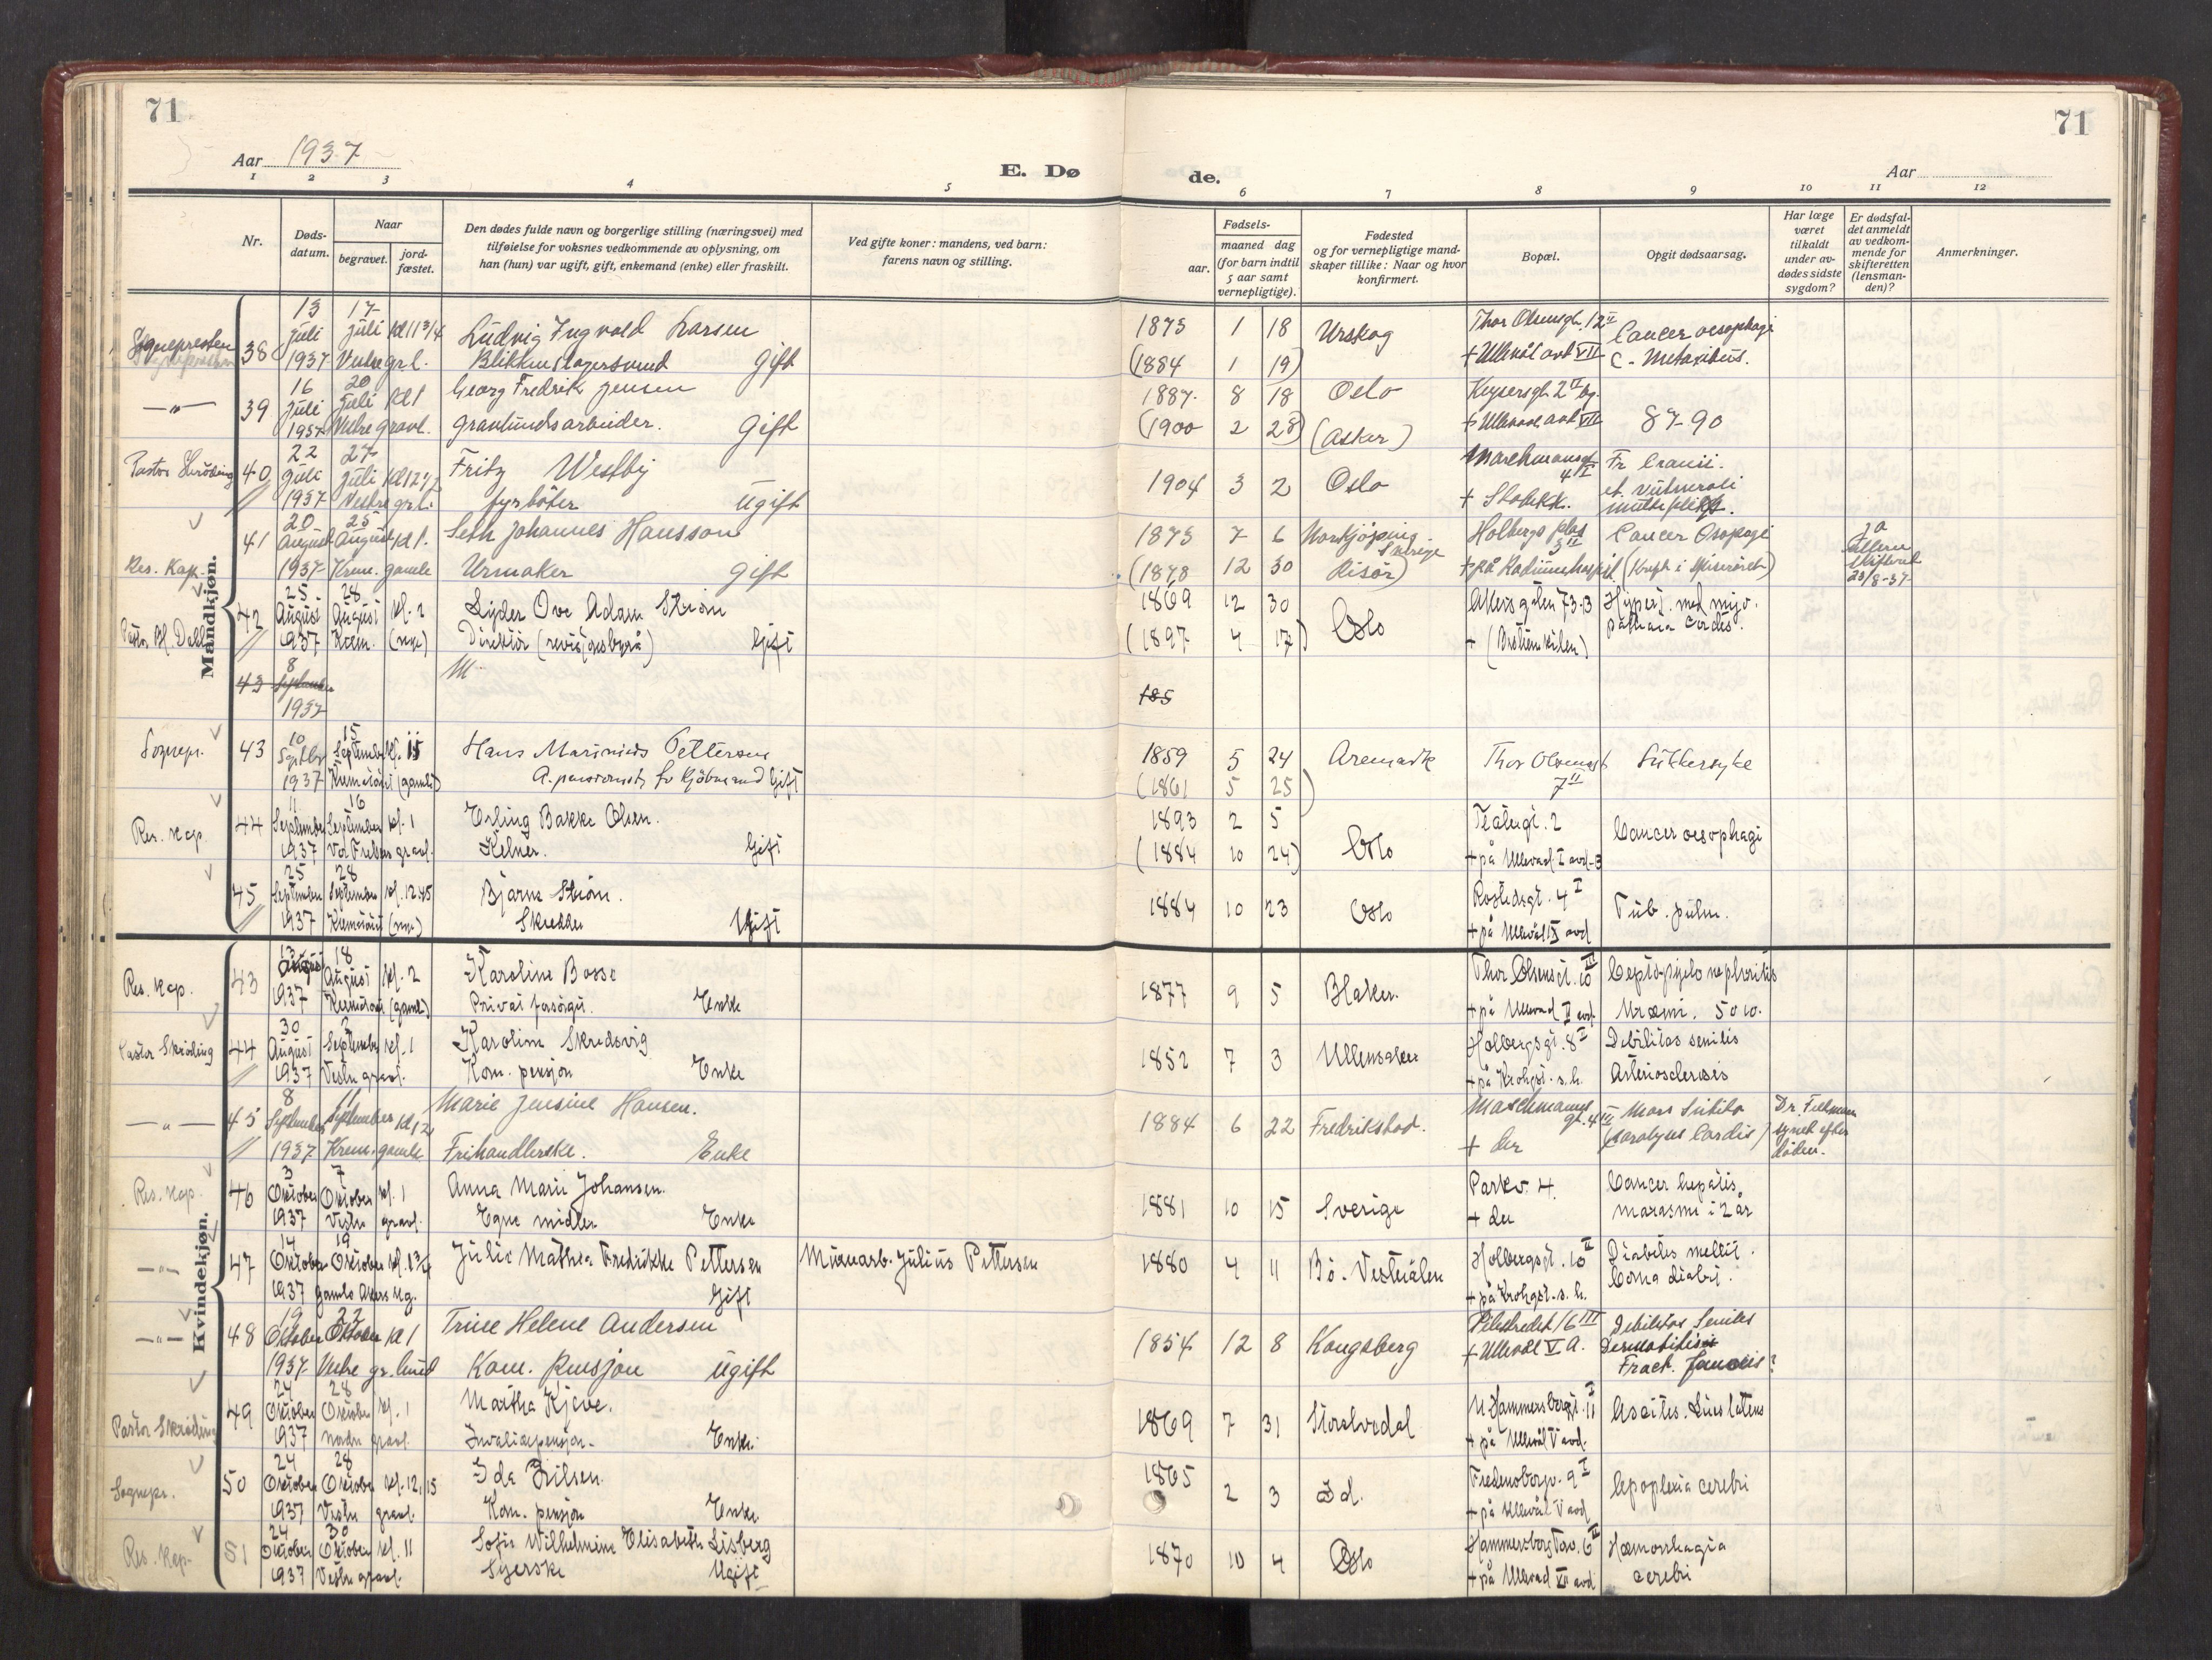 71
71
Aar 1937
E. Dø
de.
Aar
1 2 3 4 5 6 7 8 9 10 11 12
Nr.
Døds-
datum.
Naar
begravet.
jord-
fæstet.
Den dødes fulde navn og borgerlige stilling (næringsvei) med
tilføielse for voksnes vedkommende av oplysning, om
han (hun) var ugift, gift, enkemand (enke) eller fraskilt.
Ved gifte koner: mandens, ved barn:
farens navn og stilling.
Fødsels-
aar.
maaned dag
(for barn indtil
5 aar samt
vernepligtige).
Fødested
og for vernepligtige mand-
skaper tillike: Naar og hvor
konfirmert.
Bopæl.
Opgit dødsaarsag.
Har læge
været
tilkaldt
under av-
dødes sidste
sygdom?
Er dødsfal-
det anmeldt
av vedkom-
mende for
skifteretten
(lensman-
den)?
Anmerkninger.
Mandkjøn.
13 17
Sognepresten 38 Juli Juli Kl 11 3/4 Ludvig Ingvald Larsen 1873 1 18 Urskog Thor Olsensgt. 12 II Cancer oesophagi
1937 Vestre grl. Gift (1884 1 19) + Ullevål avd VII c. Metaritus.
16 20 Georg Fredrik Jensen 1887 8 18 Oslo Keysersgt. 2
39 Juli Juli Kl 1
1937 Vestre gravl. gravlundsarbeider. Gift (1900 2 28) (Asker) + Ullevål avd VII 87-90
22 27 Fritz Westby
40 Juli Juli Kl 12 1904 3 2 Oslo Fr Cranii.
1937 Vestre grl. fyrbøter Ugift
20 25 Seth Johannes Hansson 1873 7 6 Norrkjöping Holbergs plas Cancer Osopagi ja
41 August August Kl 1. Sverige 3 II
Res. Kap. 1937 Krem. gamle Urmaker Gift (1878 12 30 Risør) + på Radiumhospit. (Kreft i spiserøret) 23/8-37
25 28
42 August August kl. 2 Lyder Ove Adam Strøm 1869 12 30 Oslo Akersgaten 73 B
Pastor Dahl 1937 Krem. (nye) Direktør (revisjonsbyrå) Gift (1897 4 17)
8
43 September M
1937 185
10 15
Sognepr. 43 Septbr September Kl. 15 Hans Marinius Pettersen 1859 5 24 Aremark Thor Olsensgt Sukkersyke
1937 Krematoriet (gamle) A. pensionist, fv kjøbmand Gift (1861 5 25) 7 II
11 16
Res. Kap 44 September September kl. 1 Erling Bakke Olsen. 1893 2 5 Teatergt. 2 Cancer oesophagi
1937 Vor Frelsers gravl. Kelner. Gift (1884 10 24) Oslo + på Ullevål I avd. B
25 28
45 September September kl. 12.45 Bjarne Strøm. 1884 10 23 Oslo Rostedsgt. 4 I Tub. pulm.
1937 Krematoriet (nye) Skredder Ugift + på Ullevål IX avd
Kvindekjøn.
13 18
Res. Kap. 43 August August kl. 2 Karoline Bosse 1877 9 5 Blaker. Thor Olsensgt. 10 III Ceptopyelo nephoritis
1937 Krematoriet (gamle) Privat forsørget. Enke + på Ullevål II avd. Uræmi. 50 10.
30 2
Pastor Skrøding 44 August September kl. 1 Karoline Skredsvig 1852 7 3 Ullensaker Holbergsgt. 8 I Debilitas senilis
1937 Vestre gravl. Kom. pensjon Enke + på Krohgst. s. h. Arteriosclerosis
8 11 Marie Jensine Hansen. Maschmanns
45 September September Kl 12 1884 6 22 Fredrikstad. gt. 4 III Mors Subita Dr.
1937 Krem. gamle Frihandlerske. Enke + der (paralyses Cordis) synet efter
døden.
3 7
Res. Kap. 46 Oktober Oktober kl. 1 Anna Marie Johansen. 1881 10 15 Sverige Parkv. 4. Cancer hepatis,
1937 Vestre gravl. Egne midler Enke + der marasmi i 2 år
14 19
47 Oktober Oktober kl. 1 3/4 Julie Mathea Fredrikke Pettersen Murarb. Julius Pettersen 1880 4 11 Bø. Vesterålen Holbergsgt. 10 II Diabetes mellit.
1937 Gamle Akers kg. Gift + på Krohgst. s. h. Coma diabet.
19 22 Trine Helene Andersen Pilestredet 16 III Debilitas Seniles
48 Oktober Oktober Kl 1 1854 12 8 Kongsberg + Ullevål V A.
1937 Vestre gr. lund Kom. Pensjon Ugift Fract. femoris?
24 28
49 Oktober Oktober kl. 1 Martha Kjeve. 1869 7 31 Storelvedal Hammersborggt. 11 Ascites. Lues latens
Pastor Skrøding 1937 Nordre gravl. Invalidepensjon. Enke. + på Ullevål V avd.
24 28
Sognepr. 50 Oktober Oktober kl. 12,15 Ida Nilsen. 1865 2 3 Id. Fredensborgv. 9 I Apoplexia cerebri
1937 Vestre gravl. Kom. pensjon Enke. + på Ullevål V avd
24 30
Res. Kap. 51 Oktober Oktober kl. 11 Sofie Wilhelmine Elisabeth Lisberg 1870 10 4 Oslo Hammersborg Tav. 6 II Hæmorrhagia
1937 Vestre gravl. Syerske Ugift + på Ullevål VII avd cerebri